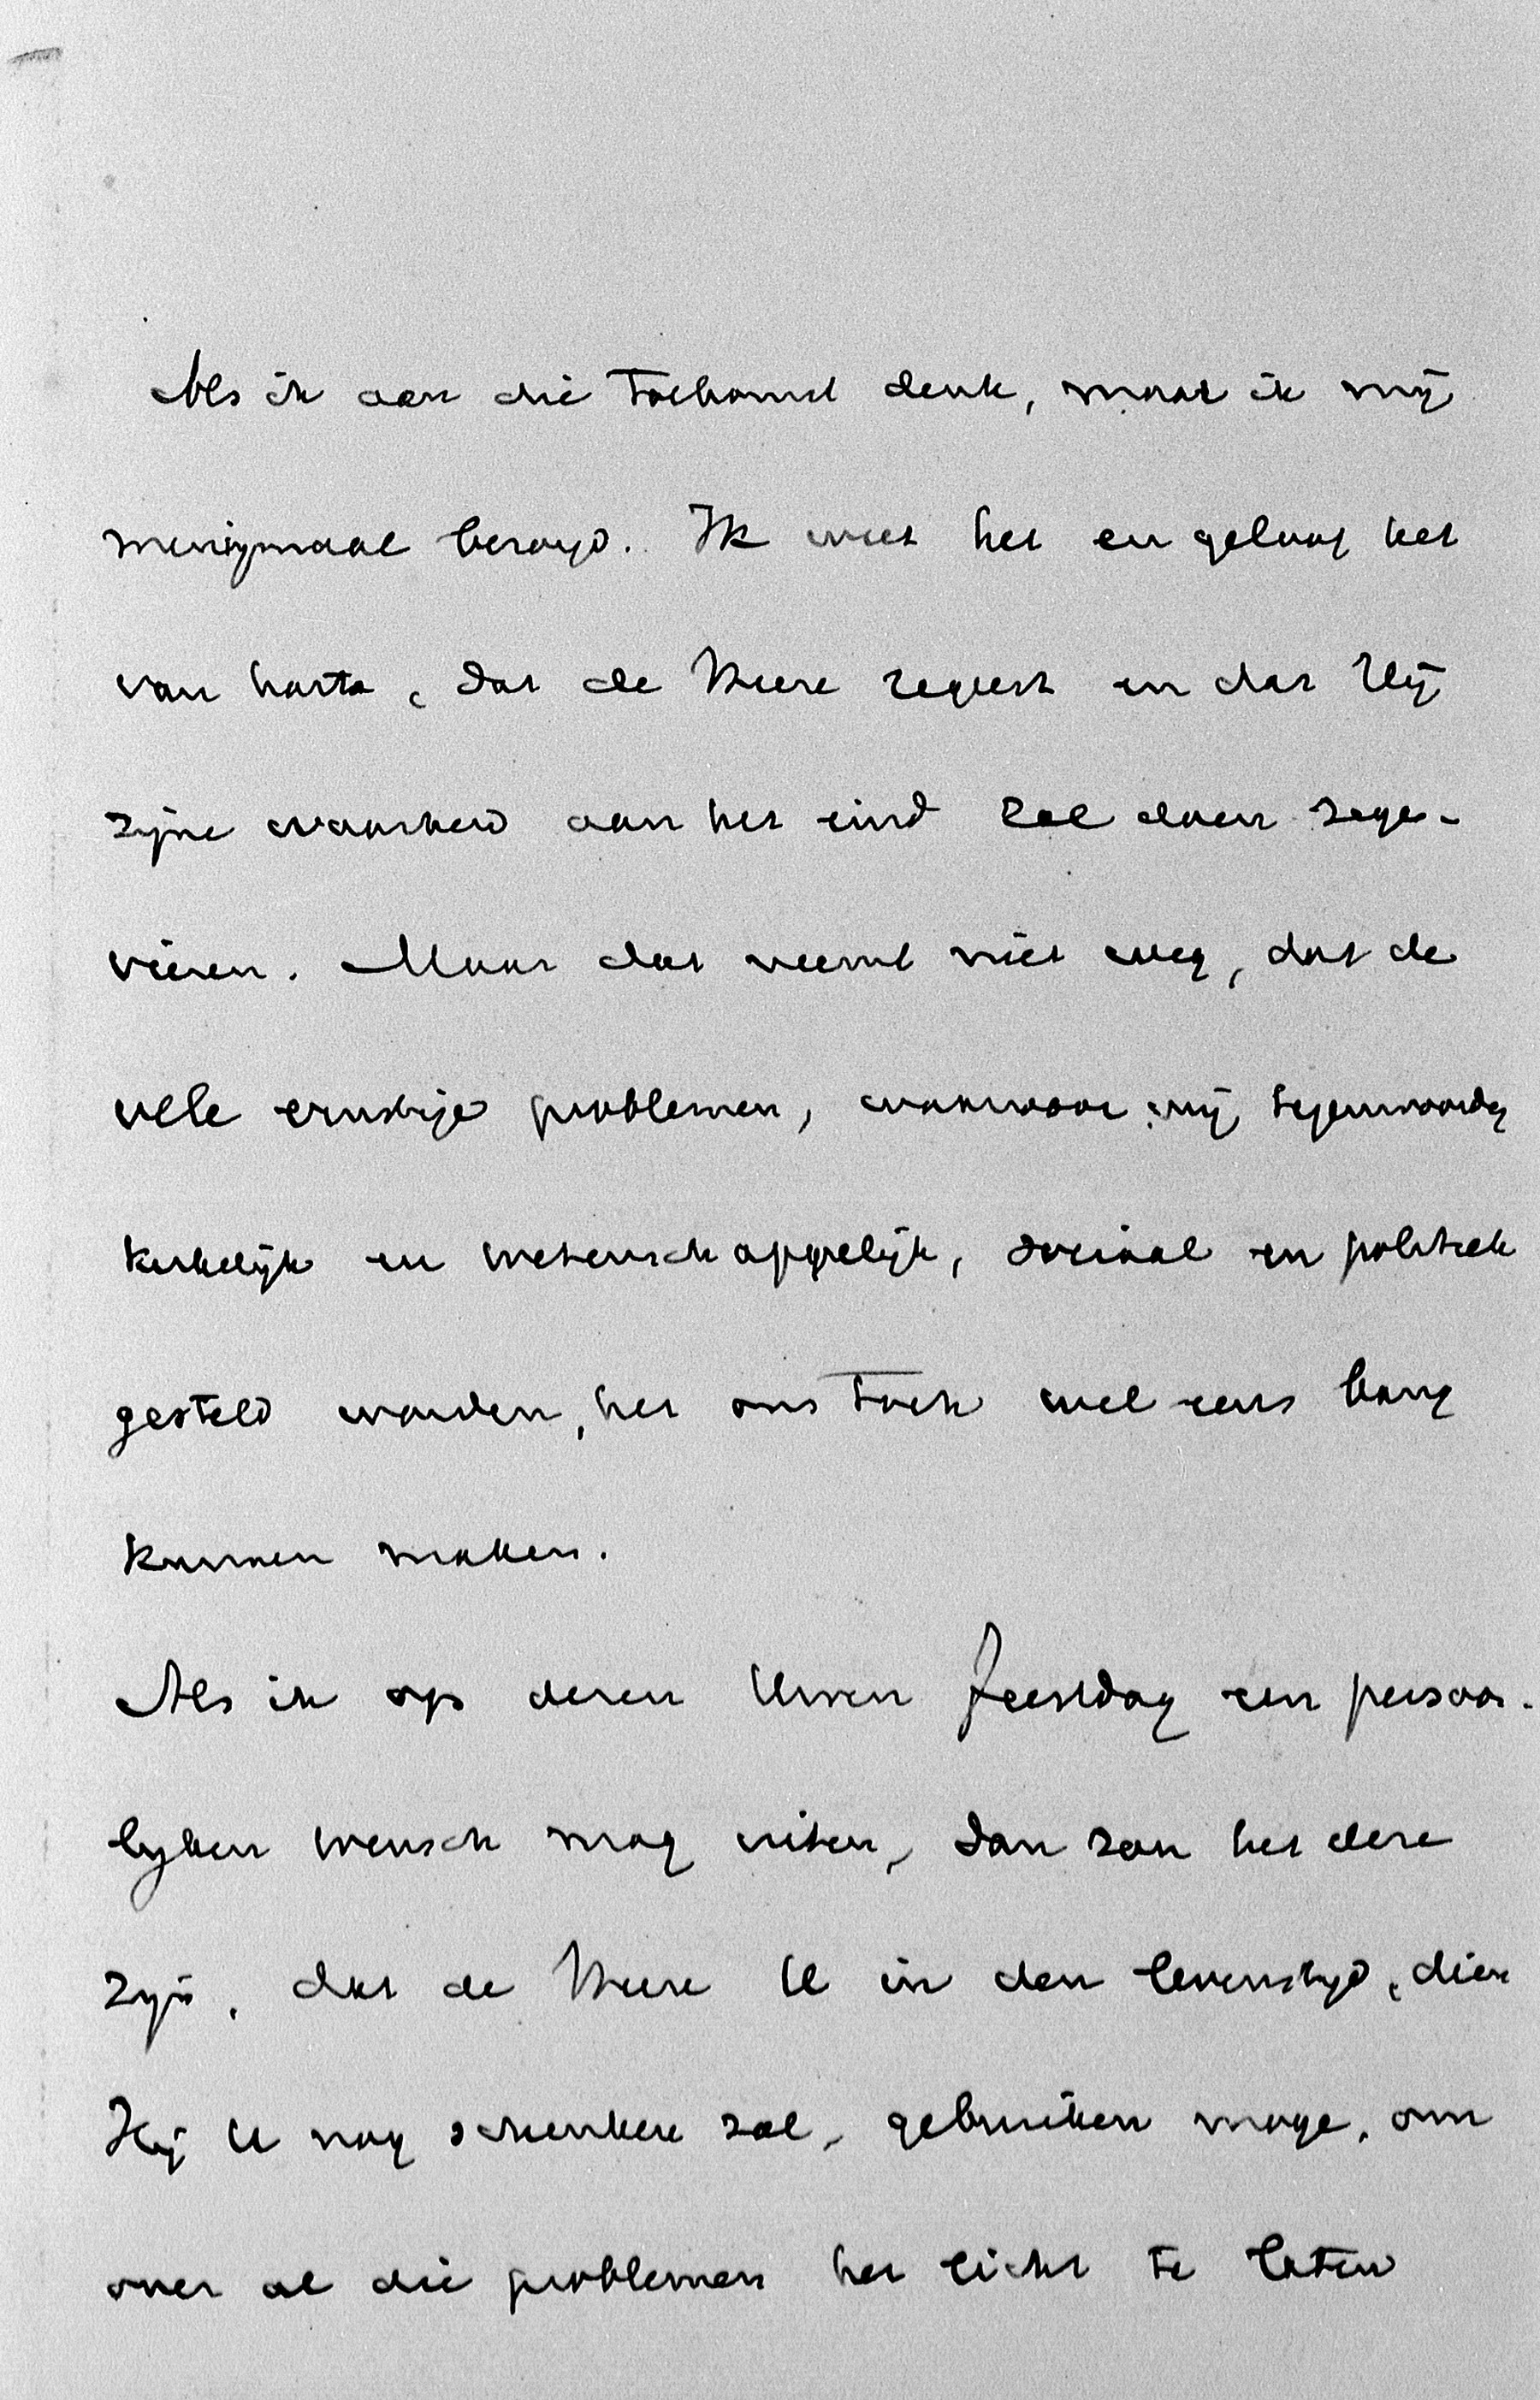 Als ik aan die toekomst denk, maak ik mij
menigmaal bezorgd. Ik weet het en geloof het
van harte, dat de Heere regeert en dat Hij
zijne waarheid aan het eind zal doen zege-
vieren. Maar dat neemt niet weg, dat de
vele ernstige problemen, waarvoor wij tegenwoordig
kerkelijk en wetenschappelijk, sociaal en politiek
gesteld worden, het ons toch wel eens bang
kunnen maken.
Als ik op dezen Uwen feestdag een persoon-
lijken wensch mag uiten, dan zou het deze
zijn, dat de Heere U in den levenstijd, dien
Hij U nog schenken zal, gebruiken moge, om
over al die problemen het licht te laten